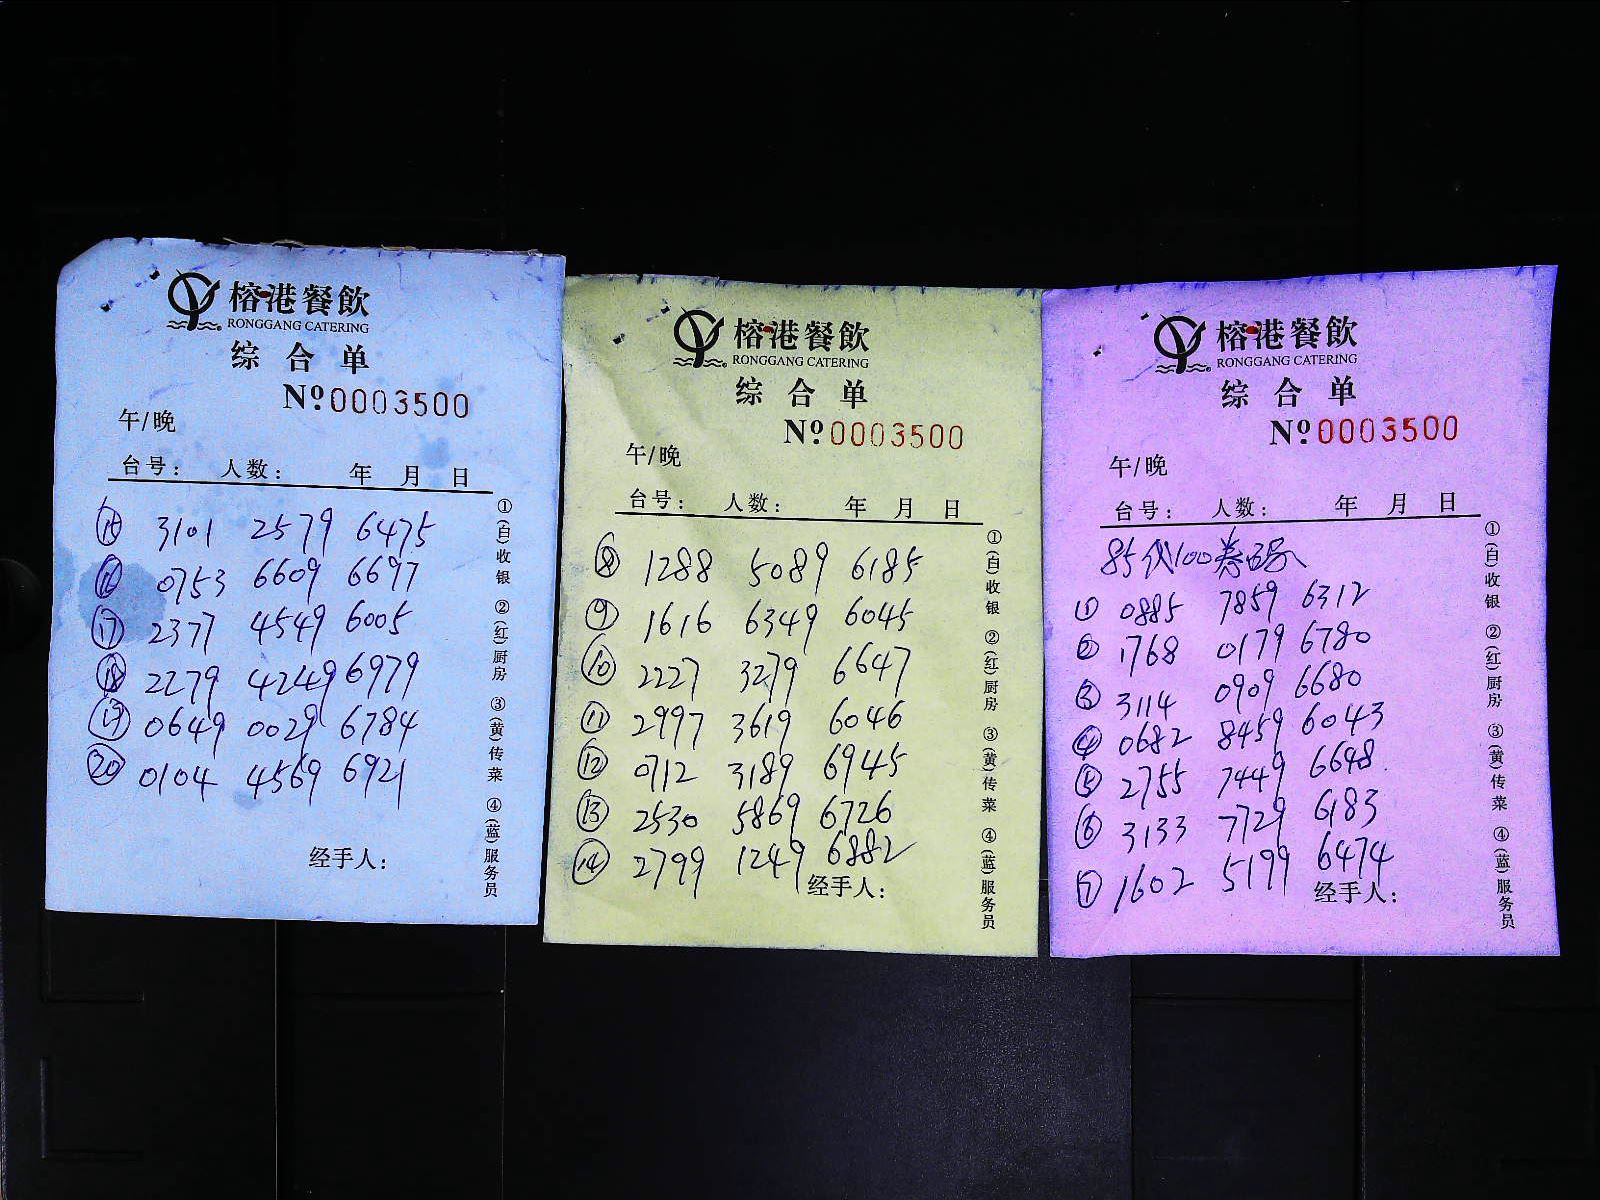 榕港餐飲
RONGGANG CATERING
综合单
№0003500
午/晚
台号： 人数： 年 月 日
⑮ 3101 2579 6475
⑯ 0753 6609 6697
⑰ 2377 4549 6005
⑱ 2279 4249 6979
⑲ 0649 0029 6784
⑳ 0104 4569 6921
经手人：
①(白)收银 ②(红)厨房 ③(黄)传菜 ④(蓝)服务员
榕港餐飲
RONGGANG CATERING
综合单
№0003500
午/晚
台号： 人数： 年 月 日
⑧ 1288 5089 6185
⑨ 1616 6349 6045
⑩ 2227 3279 6647
⑪ 2997 3619 6046
⑫ 0712 3189 6945
⑬ 2530 5869 6726
⑭ 2799 1249 6882
经手人：
①(白)收银 ②(红)厨房 ③(黄)传菜 ④(蓝)服务员
榕港餐飲
RONGGANG CATERING
综合单
№0003500
午/晚
台号： 人数： 年 月 日
85代100券码
① 0885 7859 6312
② 1768 0179 6780
③ 3114 0909 6680
④ 0682 8459 6043
⑤ 2755 7449 6648
⑥ 3133 7729 6183
⑦ 1602 5199 6474
经手人：
①(白)收银 ②(红)厨房 ③(黄)传菜 ④(蓝)服务员